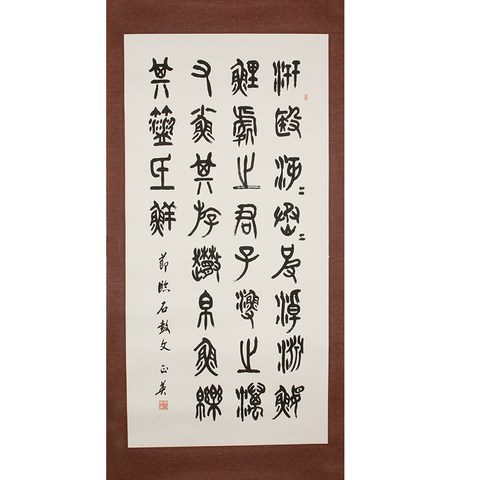 汧殹沔沔烝彼淖淵鰋
鯉處之君子漁之澫
又小魚其斿帛魚皪
其氐鮮
節臨石鼓文 正英